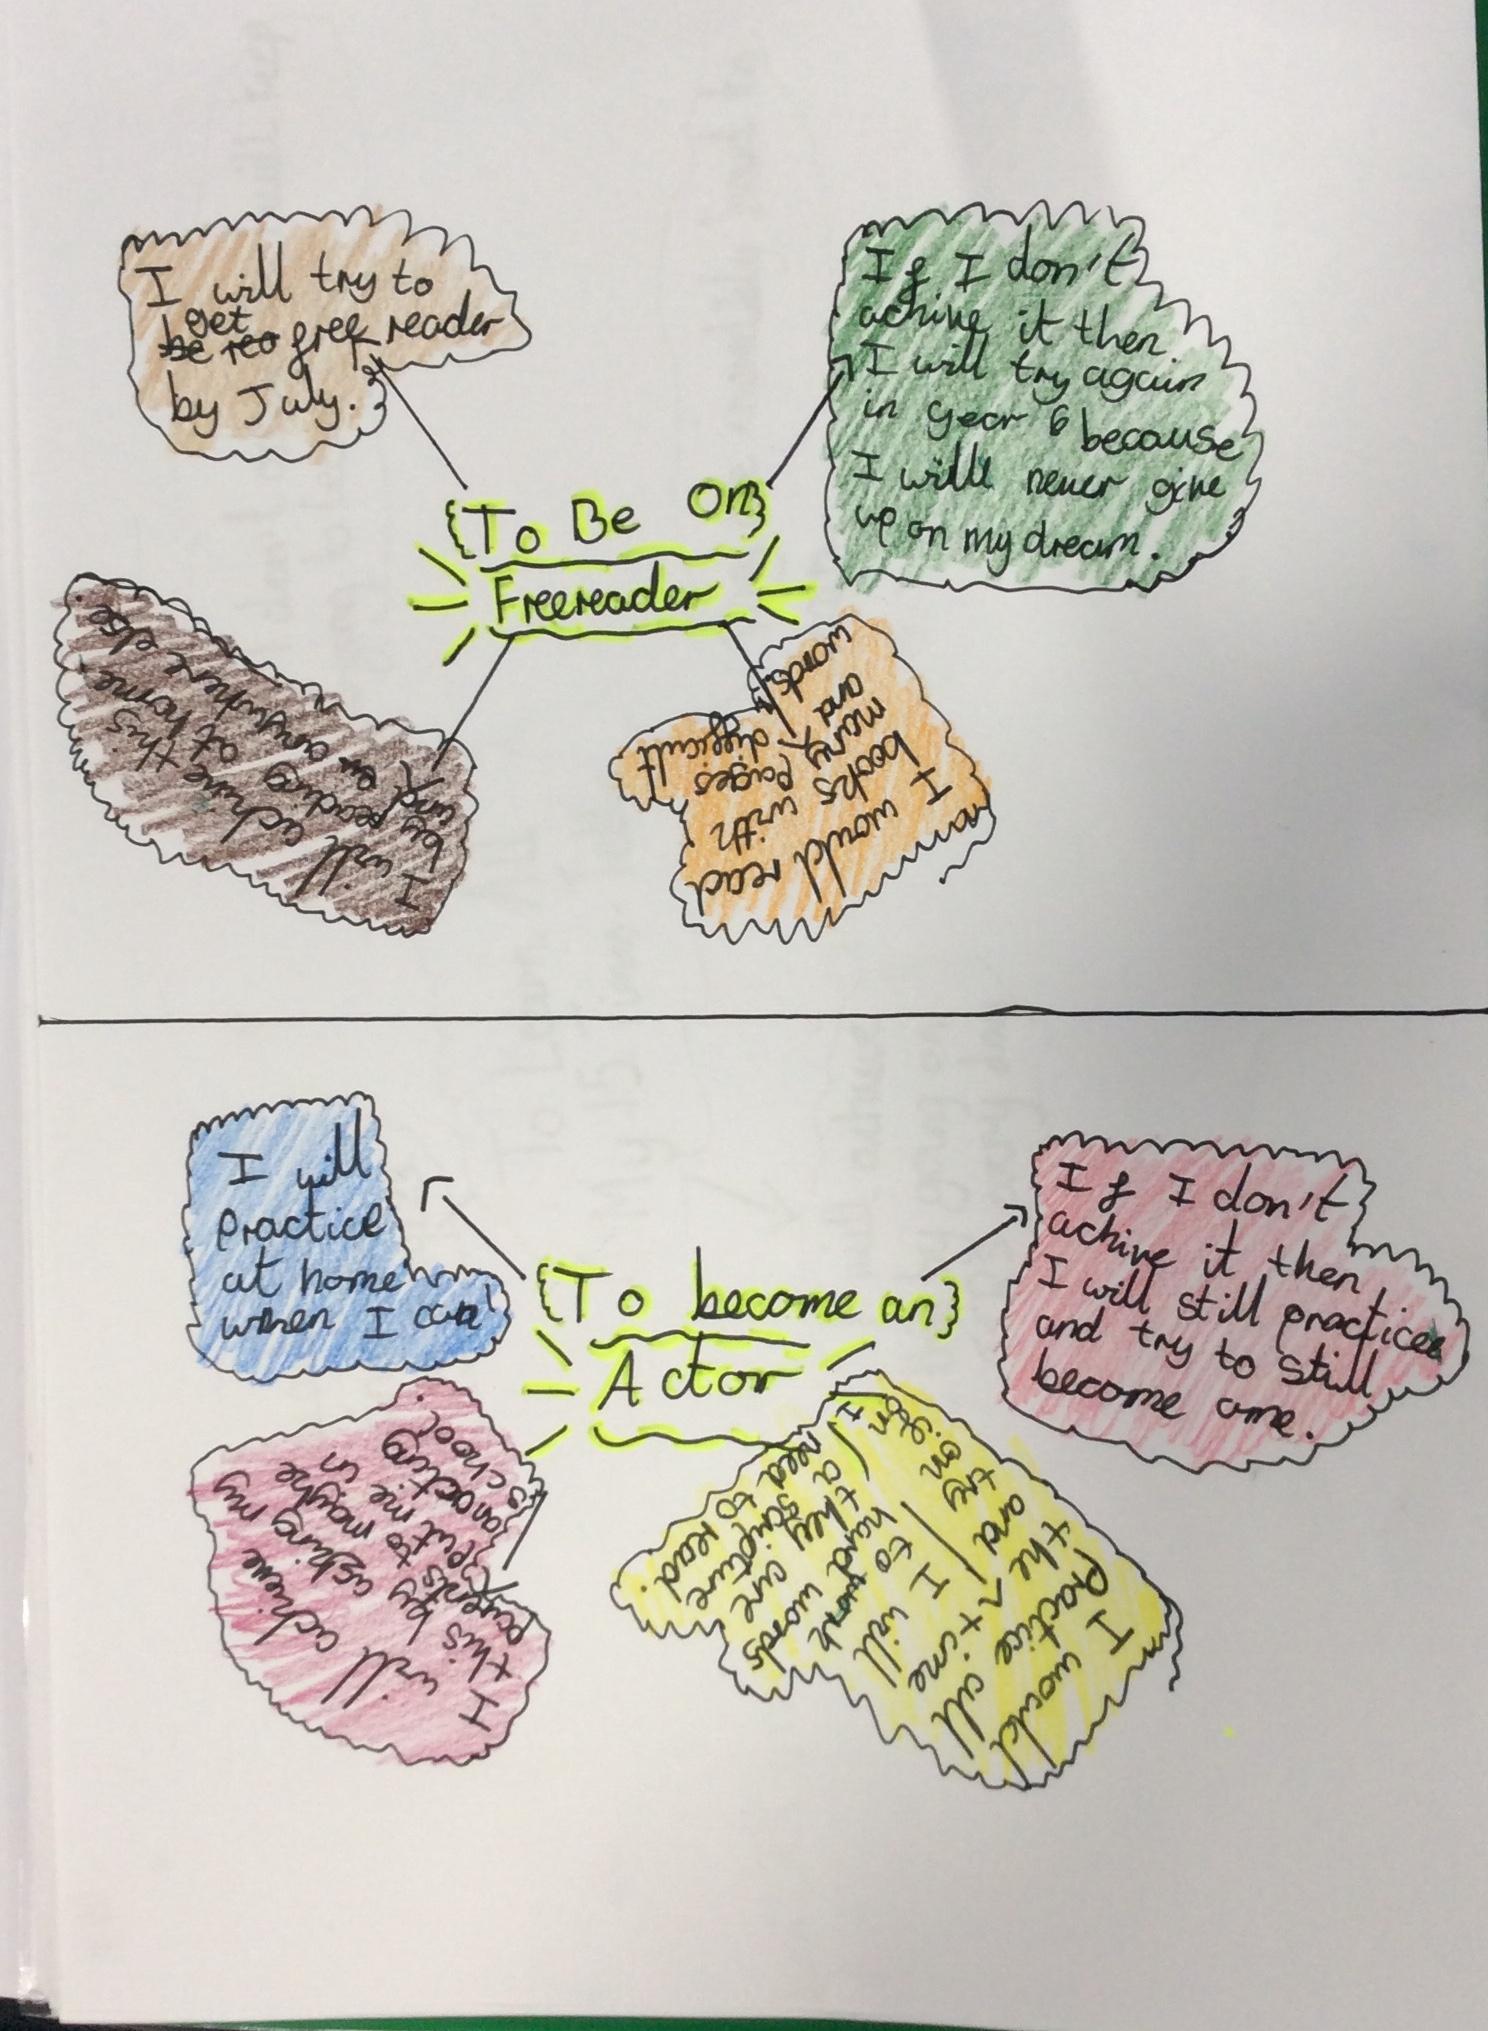 I will try to
get
be reo free reader
by July.
If I don't
achive it then
I will try again
in year 6 because
I will never give
up on my dream.
{To Be On}
Freereader
I will achive this
by reading at home
and or anywhere else
I would read
books with
many pages
and difficult
words.
I will
practice
at home
when I can
If I don't
achive it then
I will still practice
and try to still
become one.
{To become an}
Actor
I will achieve
this by asking my
parents to maybe
put me in
an acting
school.
I would
Practice all
the time
and I will
try to
on hard work
if they are words
on a scripture
I need to read.